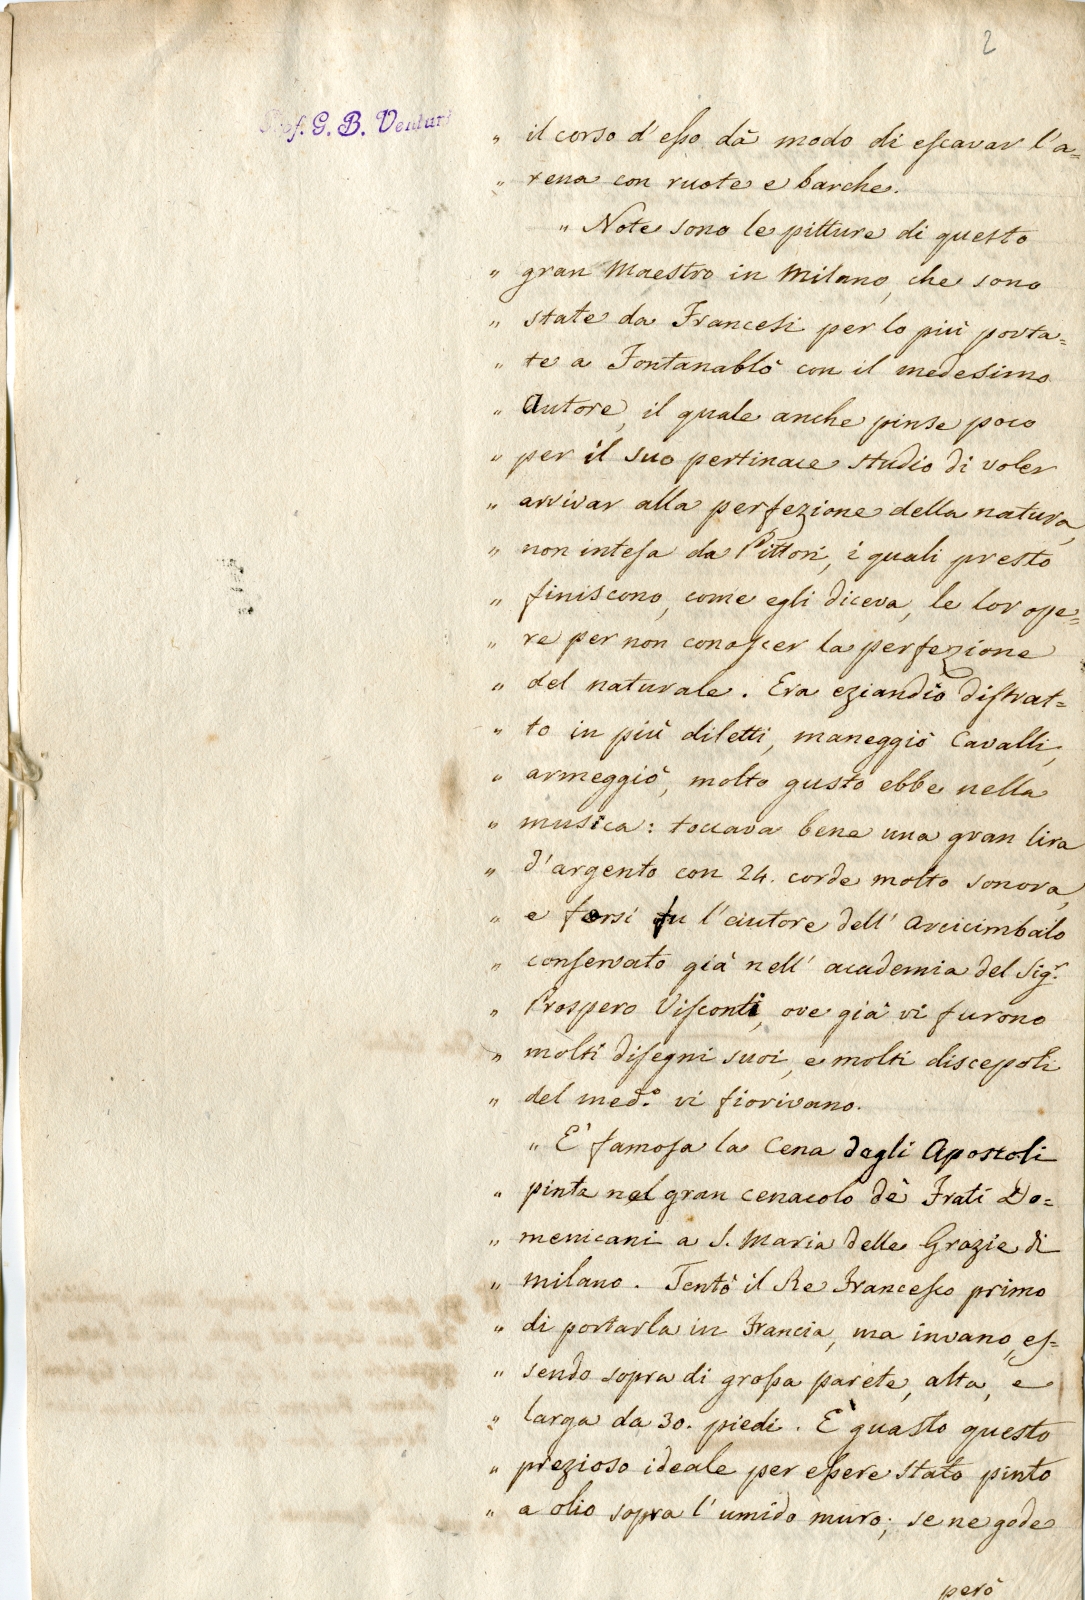 2
Prof. G. B. Venturi
" il corso d'esso dà modo di escavar l'a=
" rena con ruote e barche.
" Note sono le pitture di questo
" gran Maestro in Milano, che sono
" state da Francesi per lo più porta=
" te a Fontanablò con il medesimo
" Autore, il quale anche pinse poco
" per il suo pertinace studio di voler
" arrivar alla perfezione della natura,
" non intesa da Pittori, i quali presto
" finiscono, come egli diceva, le lor ope=
" re per non conoscer la perfezione
" del naturale. Era eziandio distrat=
" to in più diletti, maneggiò Cavalli,
" armeggiò, molto gusto ebbe nella
" musica: toccava bene una gran lira
" d'argento con 24. corde molto sonora,
" e forsi fu l'autore dell'Arcicimbalo
" conservato già nell'academia del Sigr.
" Prospero Visconti, ove già vi furono
" molti disegni suoi, e molti discepoli
" del med.o vi fiorivano.
" E' famosa la Cena degli Apostoli
" pinta nel gran cenacolo dè Frati Do=
" menicani a S. Maria delle Grazie di
" Milano. Tentò il Re Francesco primo
" di portarla in Francia, ma invano, es=
" sendo sopra di grossa parete, alta, e
" larga da 30. piedi. E' guasto questo
" prezioso ideale per essere stato pinto
" a olio sopra l'umido muro; se ne gode
però